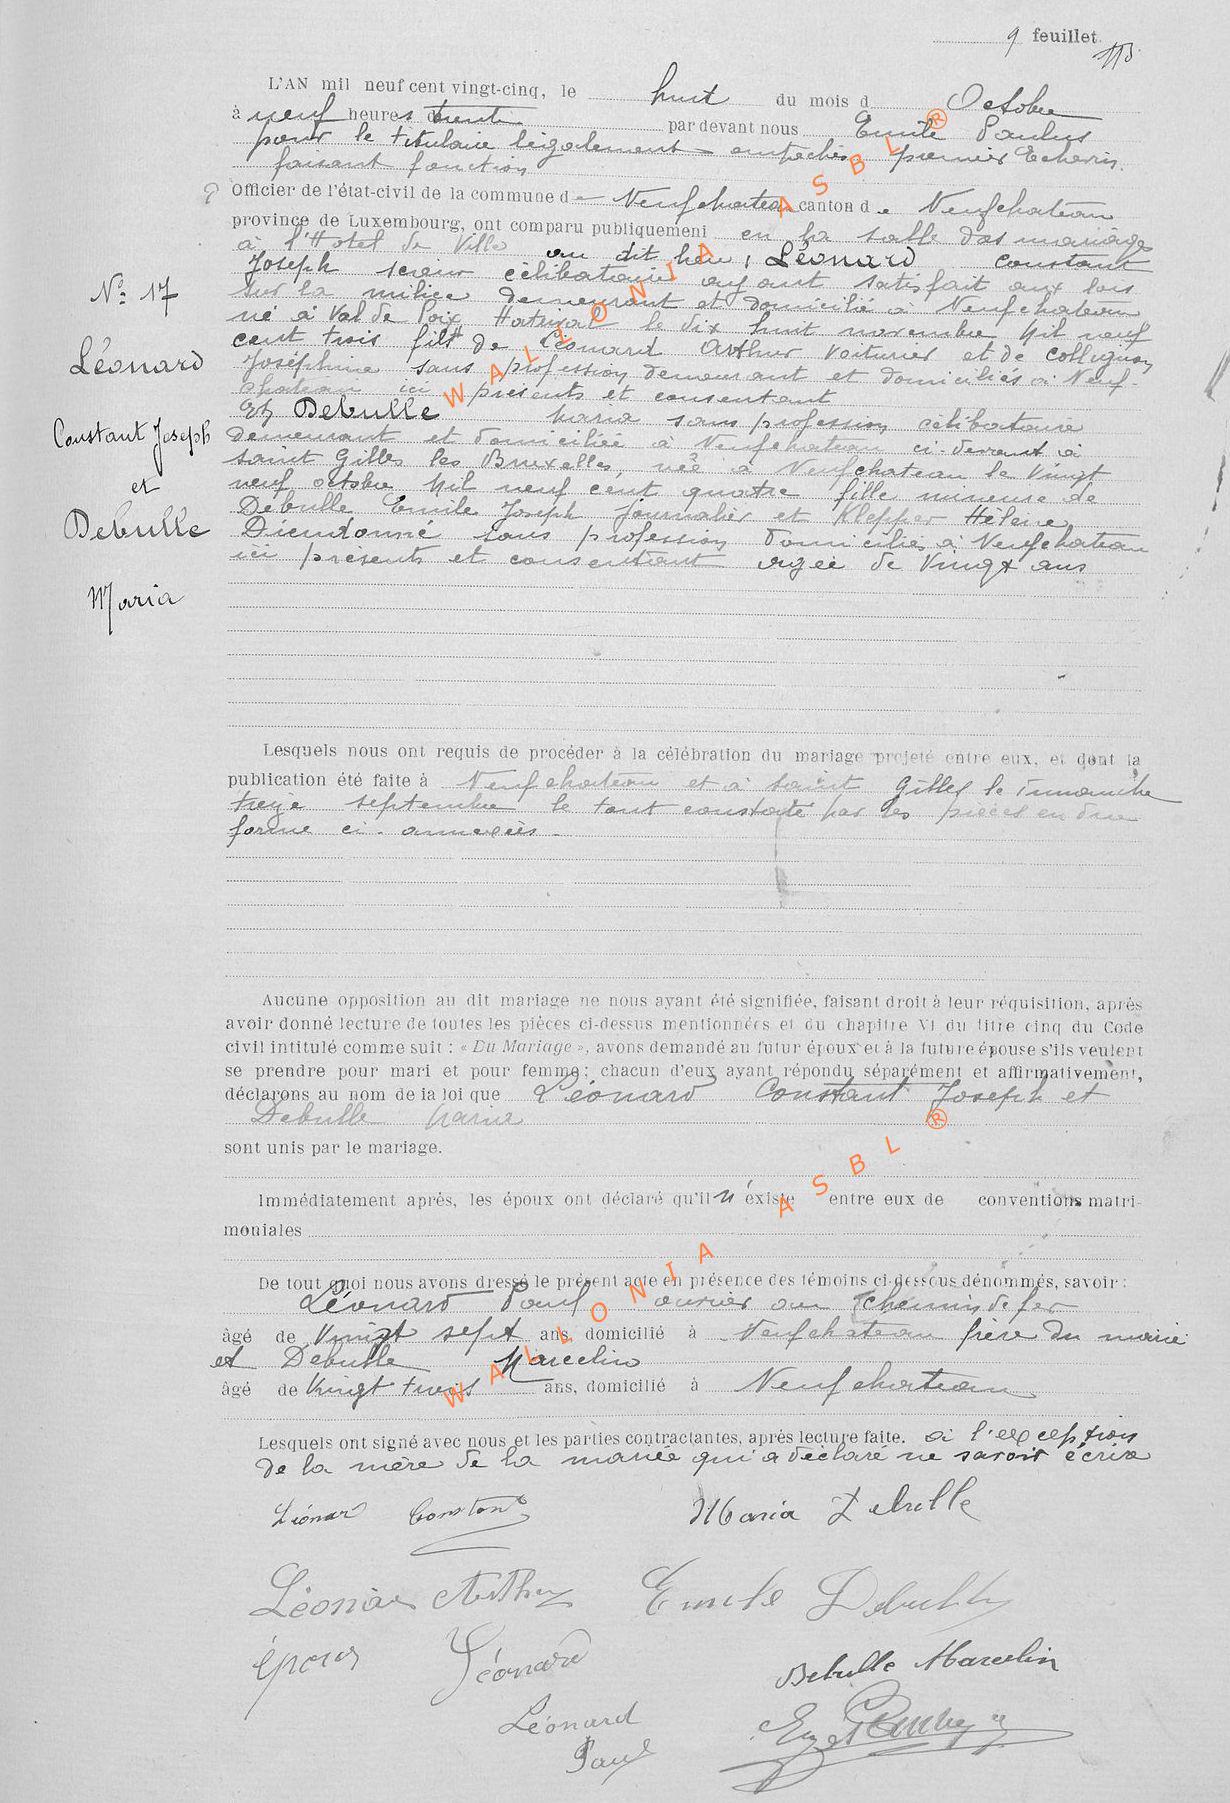 9 feuillet
L'AN mil neuf cent vingt-cinq, le huit du mois d Octobre
à neuf heures trente par devant nous Emile Paulus
pour le titulaire légalement empêché premier Echevin
faisant fonction
Officier de l'état-civil de la commune de Neufchateau canton de Neufchateau
province de Luxembourg, ont comparu publiquement en la salle des mariages
à l'Hotel de Ville au dit lieu, Léonard Constant
Joseph scieur célibataire ayant satisfait aux lois
sur la milice demeurant et domicilié à Neufchateau
né à Val de Poix Hatrival le dix huit novembre Mil neuf
cent trois fils de Léonard Arthur voiturier et de Collignon
Joséphine sans profession demeurant et domiciliés à Neuf-
chateau ici présents et consentant
Et Debulle Maria sans profession célibataire
demeurant et domiciliée à Neufchateau ci-devant à
Saint Gilles les Bruxelles, née à Neufchateau le Vingt
neuf octobre Mil neuf cent quatre fille mineure de
Debulle Emile Joseph journalier et Klepper Hélène
Dieudonné sans profession domiciliés à Neufchateau
ici présents et consentant agée de Vingt ans
N° 17
Léonard
Constant Joseph
et
Debulle
Maria
Lesquels nous ont requis de procéder à la célébration du mariage projeté entre eux, et dont la
publication été faite à Neufchateau et à Saint Gilles le dimanche
treize septembre le tout constaté par les pièces en due
forme ci-annexées.
Aucune opposition au dit mariage ne nous ayant été signifiée, faisant droit à leur réquisition, après
avoir donné lecture de toutes les pièces ci-dessus mentionnées et du chapitre VI du titre cinq du Code
civil intitulé comme suit : « Du Mariage », avons demandé au futur époux et à la future épouse s'ils veulent
se prendre pour mari et pour femme; chacun d'eux ayant répondu séparément et affirmativement,
déclarons au nom de la loi que Léonard Constant Joseph et
Debulle Maria
sont unis par le mariage.
Immédiatement après, les époux ont déclaré qu'il n'existe entre eux de conventions matri-
moniales
De tout quoi nous avons dressé le présent acte en présence des témoins ci-dessous dénommés, savoir :
Léonard Paul ouvrier au chemin de fer
âgé de Vingt sept ans, domicilié à Neufchateau frère du marié
et Debulle Marcelin
âgé de Vingt trois ans, domicilié à Neufchateau
Lesquels ont signé avec nous et les parties contractantes, après lecture faite. à l'exception
de la mère de la mariée qui a déclaré ne savoir écrire
Léonard Constant Maria Debulle
Léonard Arthur Emile Debulle
époux Léonard Debulle Marcelin
Léonard
Paul
WALLONIA ASBL ®
WALLONIA ASBL ®